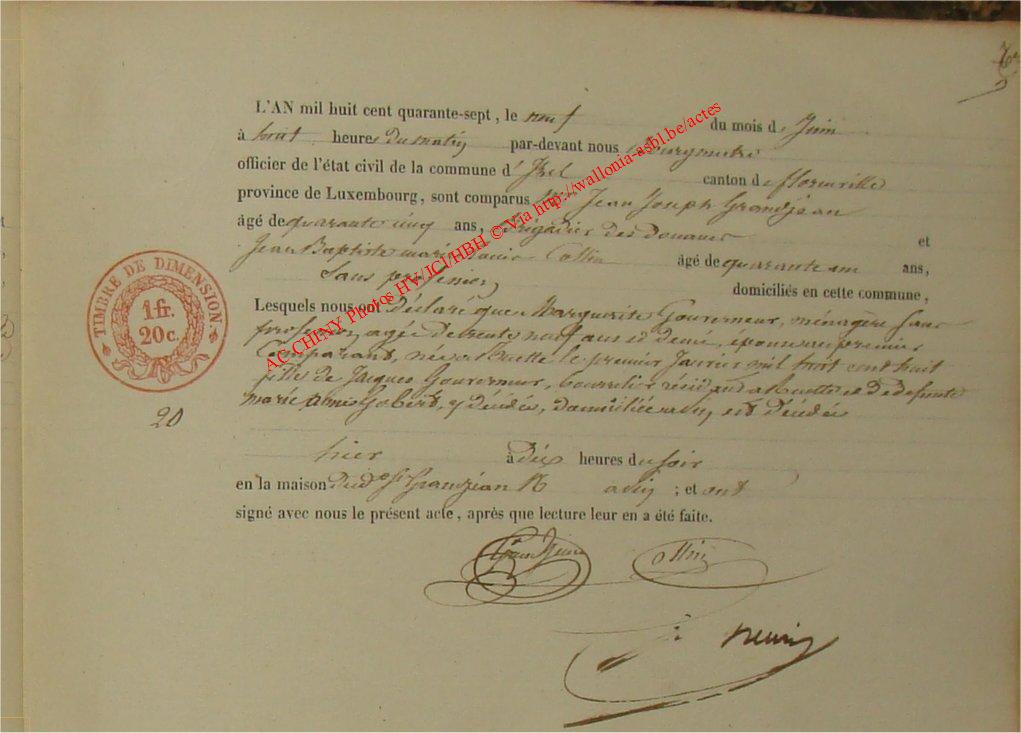 L'AN mil huit cent quarante-sept, le neuf du mois de Juin
à huit heures du matin par-devant nous Bourgmestre
officier de l'état civil de la commune d'Izel canton de florenville
province de Luxembourg, sont comparus Jean Joseph Grandjean
âgé de quarante cinq ans, Brigadier des Douanes et
Jean Baptiste marie Collin âgé de quarante un ans,
Sans profession, domiciliés en cette commune,
Lesquels nous ont déclaré que Marguerite Gouverneur, ménagère sans
profession, agée de trente neuf ans et demi, épouse au premier
Comparant, née à Ruette le premier Janvier mil huit cent huit
fille de Jacques Gouverneur, bourrelier résidant à Ruette et de defunte
marie Gobert, y décédée, domiciliée est décédée
hier à dix heures du soir
en la maison dud. Sr Grandjean ; et ont
signé avec nous le présent acte, après que lecture leur en a été faite.
TIMBRE DE DIMENSION
1 fr.
20 c.
20
Grandjean Collin
henri
AC CHINY Photos HV/JCI/HBH © Via http://wallonia-asbl.be/actes